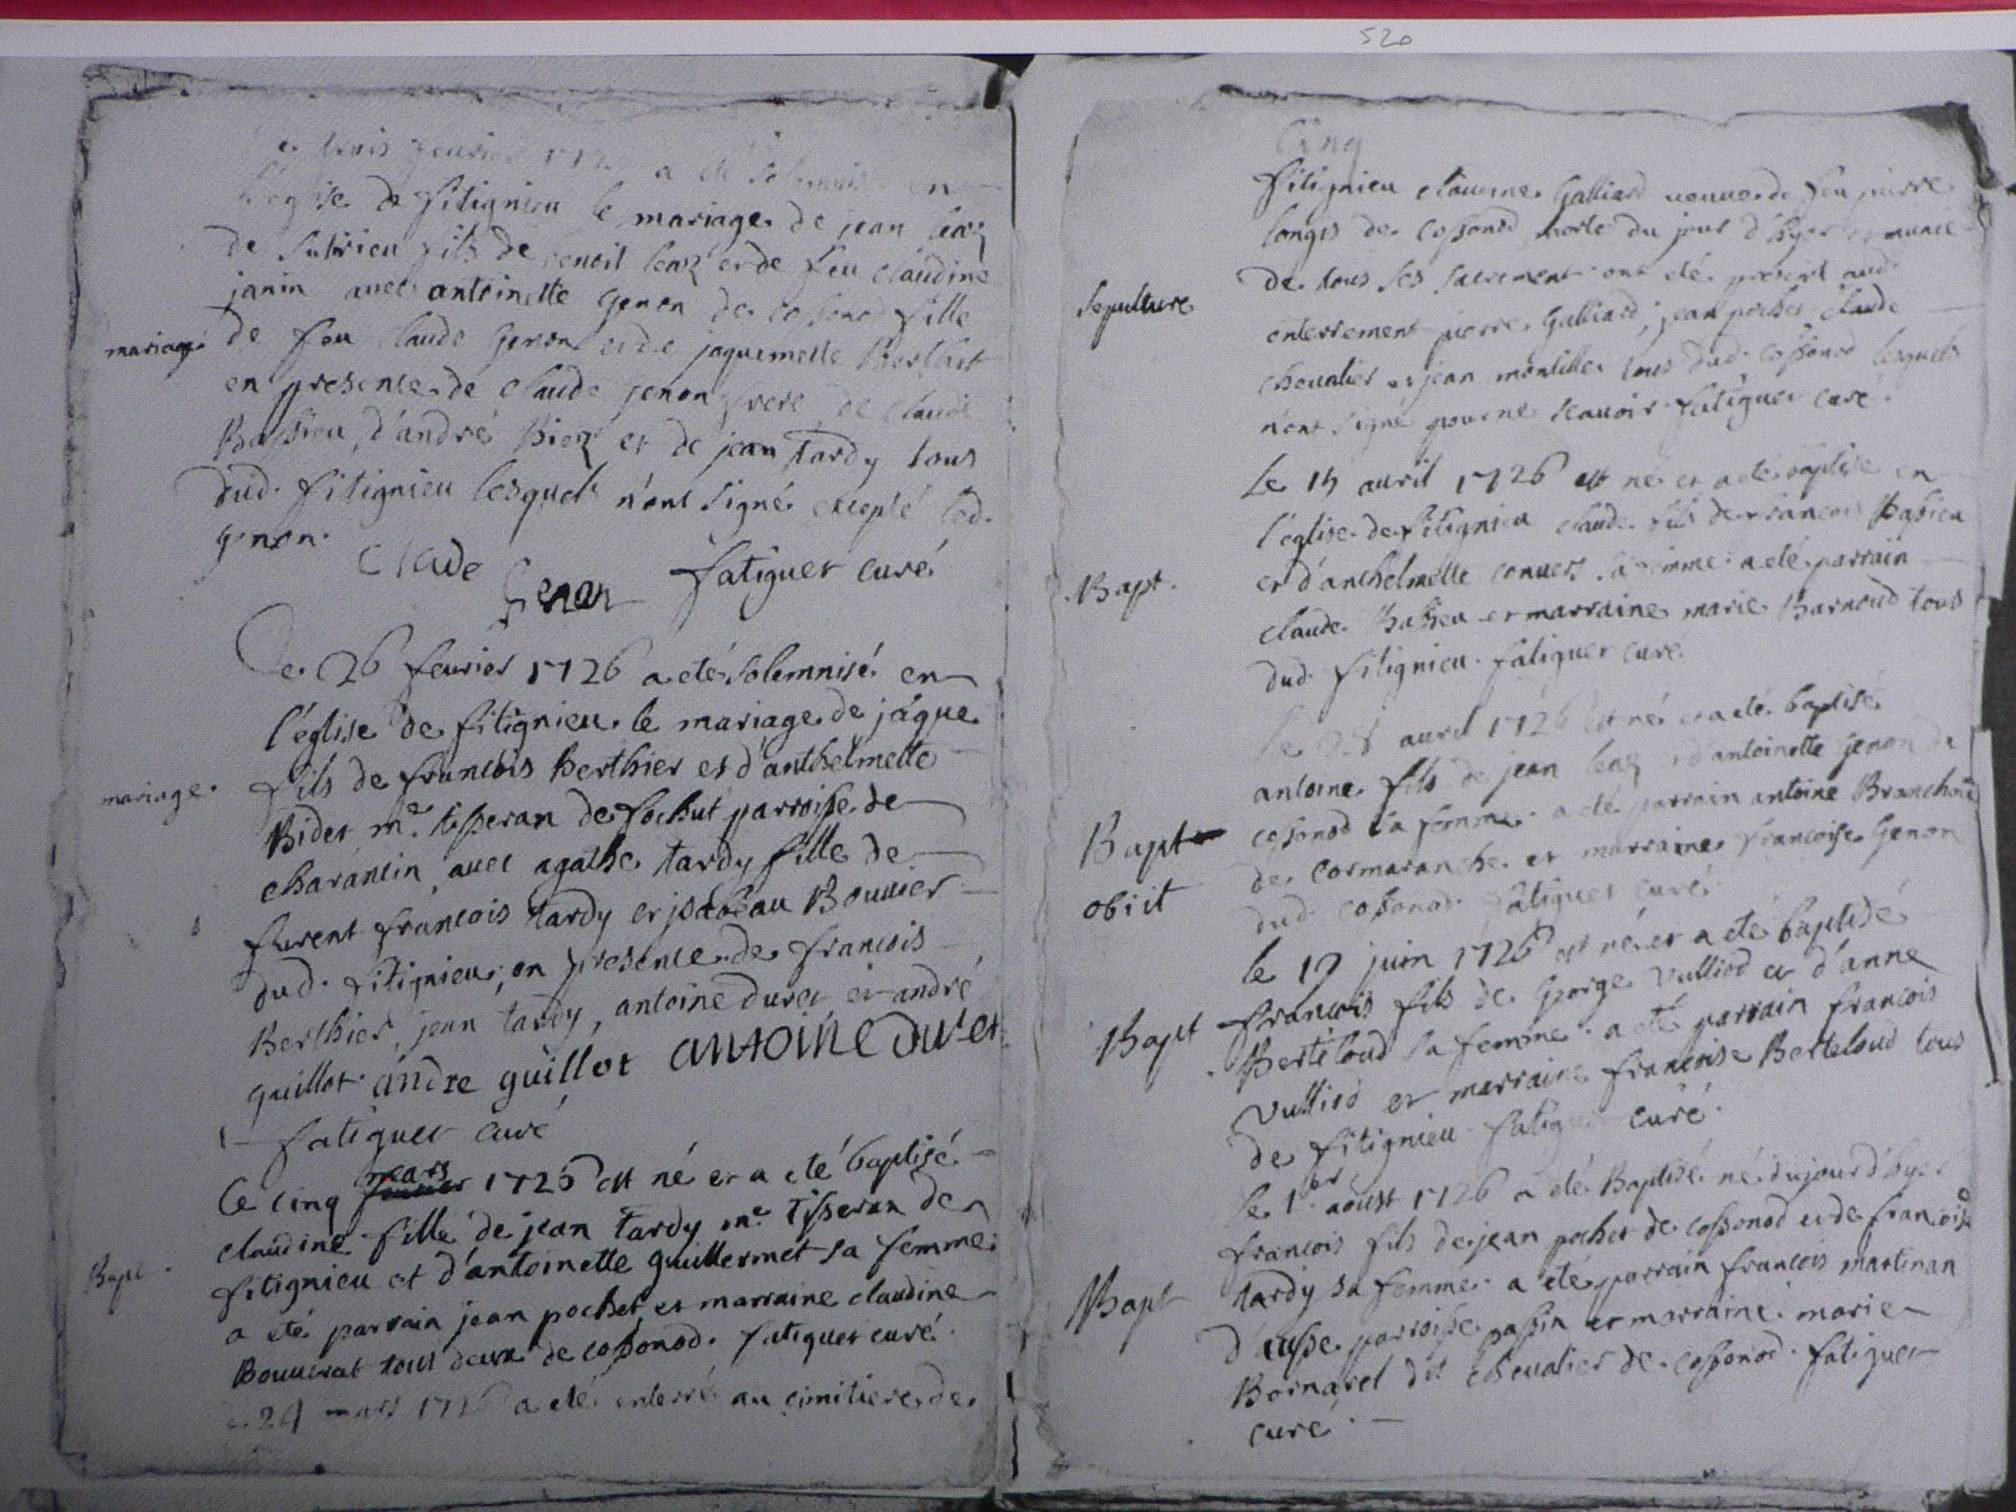 520
trois 172 a eté solemnisé en
l'eglise de fitignieu le mariage de jean
de Sutrieu fils de benoit et de feu claudine
janin avec antoinette genon de cossonod fille
mariage de feu claude genon et de jaquemette
en presence de claude jenon frere de claude
Bassieu, d'andré et de jean tardy tous
dud. fitignieu lesquels n'ont signé excepté led.
genon.
Clade Genon fatiguet curé
Le 26 fevrier 1726 a eté solemnisé en
l'église de fitignieu le mariage de jáque
mariage. fils de francois Berthier et d'anthelmette
Bidet me. tisseran de fochut parroisse de
charancin, avec agathe tardy fille de
furent francois tardy et jsabeau Bouvier
dud. fitignieu, en presence de francois
Berthier, jean tardy, antoine duret et andré
guillot. andre guillot antoine duret
fatiguet curé
Le cinq mars 1726 est né et a eté baptisé
claudine fille de jean tardy me. tisseran de
Bapt. fitignieu et d'antoinette guillermet sa femme
a eté parrain jean pochet et marraine claudine
Bouverat tous deux de cossonod. fatiguet curé.
24 mars 1726 a eté enterré au cimitiere de
Cinq
fitignieu Galliard veuve de feu pierre
longis de cossonod morte du jour d'hyer et munie
de tous ses sacrement ont eté present aud.
Sepulture enterrement pierre Galliard, jean pochet claude
chevalier et jean montillet tous dud. cossonod lesquels
n'ont signé pour ne scavoir. fatiguet curé.
Le avril 1726 est né et a eté baptisé en
l'église de fitignieu claude fils de francois Bassieu
Bapt. et d'anthelmette sa femme a eté parrain
claude Bassieu et marraine marie Barnoud tous
dud. fitignieu. fatiguet curé
le avril 1726 est né et a eté baptisé
antoine fils de jean d'antoinette genon de
Bapt cossonod sa femme. a eté parrain antoine
de cormaranche et marraine francoise Genon
obiit dud. cossonod. fatiguet curé.
le 17 juin 1726 est né et a eté baptisé
Bapt francois fils de George Vulliod et d'anne
Berteloud sa femme. a eté parrain francois
Vulliod et marraine francoise Berteloud tous
de fitignieu. fatiguet curé.
le 1er. aoust 1726 a eté Baptisé né du jour d'hyer
francois fils de jean pochet de cossonod et de francoise
Bapt tardy sa femme. a eté parrain francois martinan
d'ausse parroisse passin et marraine marie
Bornarel dit chevalier de cossonod. fatiguet
curé. —